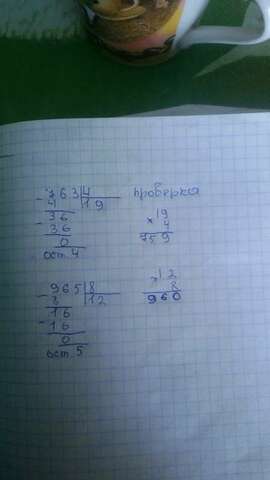 763 4 проверка
- 4 19 19
36 × 4
- 36 759
0
ост. 4
965 8 12
- 8 12 × 8
16 960
- 16
0
ост. 5